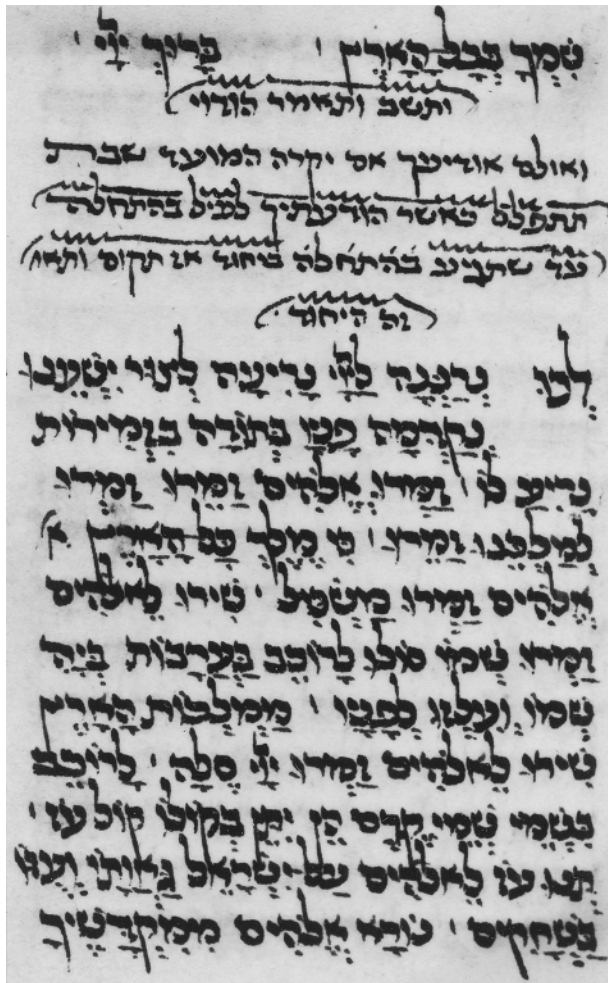 שִׁמְךָ בְּכָל הָאָרֶץ · בָּרוּךְ יְיָ ·
ותשב ותאמר הודוי
ואולם אודיעך אם יקרה המועד שבת
תתפלל כאשר הודעתיך לעיל בהתחלה
עד שתגיע בהתחלה ביחוד אז תקום ותאו
וזה היחוד
לְכוּ נְרַנְּנָה לַיְיָ נָרִיעָה לְצוּר יִשְׁעֵנוּ
נְקַדְּמָה פָנָיו בְּתוֹדָה בִּזְמִירוֹת
נָרִיעַ לוֹ · זַמְּרוּ אֱלֹהִים זַמֵּרוּ זַמְּרוּ
לְמַלְכֵּנוּ זַמֵּרוּ · כִּי מֶלֶךְ כָּל הָאָרֶץ א
אֱלֹהִים זַמְּרוּ מַשְׂכִּיל · שִׁירוּ לֵאלֹהִים
זַמְּרוּ שְׁמוֹ סוֹלּוּ לָרוֹכֵב בָּעֲרָבוֹת בְּיָהּ
שְׁמוֹ וְעִלְזוּ לְפָנָיו · מַמְלְכוֹת הָאָרֶץ
שִׁירוּ לֵאלֹהִים זַמְּרוּ יְיָ סֶלָה · לָרוֹכֵב
בִּשְׁמֵי שְׁמֵי קֶדֶם הֵן יִתֵּן בְּקוֹלוֹ קוֹל עֹז ·
תְּנוּ עֹז לֵאלֹהִים עַל יִשְׂרָאֵל גַּאֲוָתוֹ וְעֻזּוֹ
בַּשְּׁחָקִים · נוֹרָא אֱלֹהִים מִמִּקְדָּשֶׁיךָ